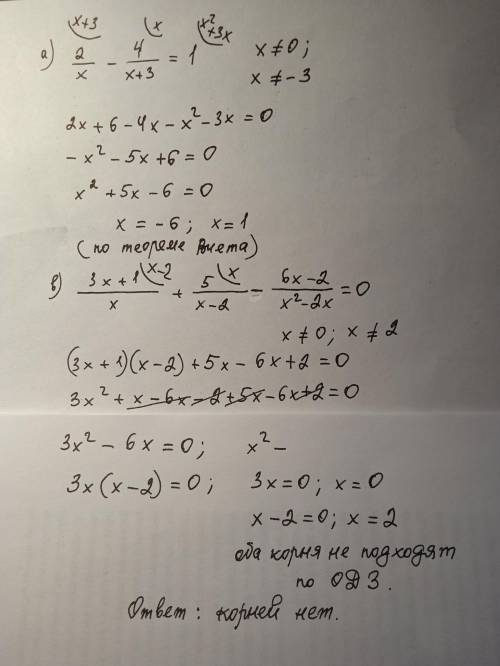 x+3 x x²+3x
а) 2/x - 4/(x+3) = 1 x ≠ 0;
x ≠ -3
2x + 6 - 4x - x² - 3x = 0
-x² - 5x + 6 = 0
x² + 5x - 6 = 0
x = -6; x = 1
(по теореме Виета)
x-2 x
в) (3x+1)/x + 5/(x-2) - (6x-2)/(x²-2x) = 0
x ≠ 0; x ≠ 2
(3x+1)(x-2) + 5x - 6x + 2 = 0
3x² + x - 6x - 2 + 5x - 6x + 2 = 0
3x² - 6x = 0; x² -
3x(x-2) = 0; 3x = 0; x = 0
x - 2 = 0; x = 2
оба корня не подходят
по ОДЗ.
Ответ: корней нет.